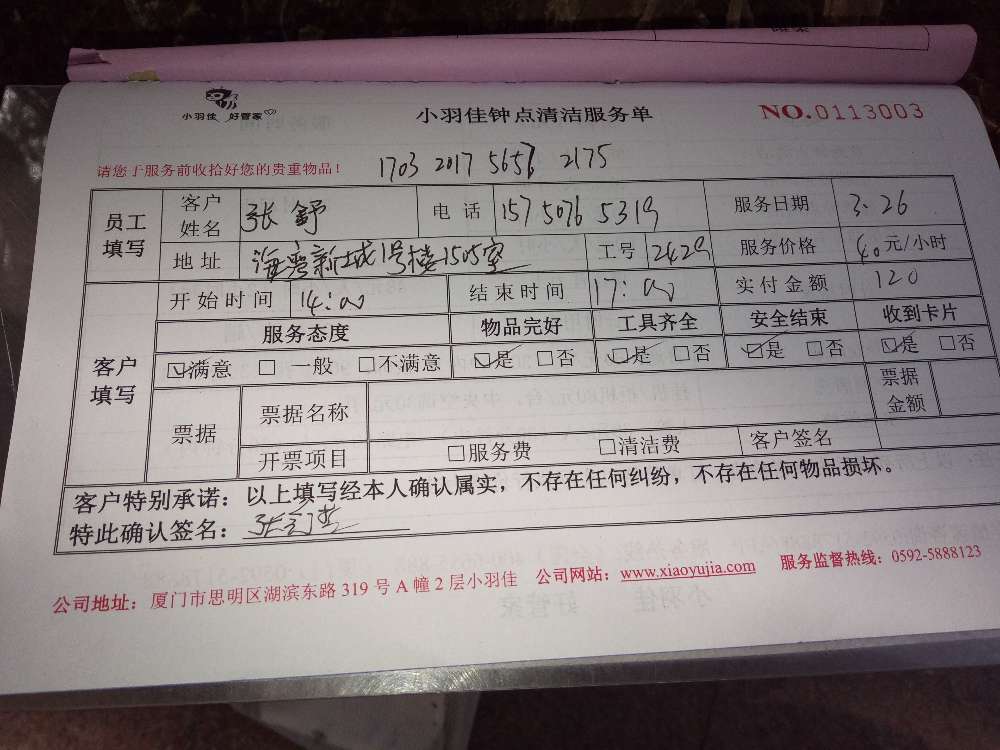 小羽佳 好管家
小羽佳钟点清洁服务单
NO.0113003
请您于服务前收拾好您的贵重物品！
1703 2017 5656 2175
员工填写 客户姓名 张舒 电话 157 5076 5319 服务日期 3.26
地址 海湾新城1号楼1505室 工号 2429 服务价格 40元/小时
客户填写 开始时间 14:00 结束时间 17:00 实付金额 120
服务态度 物品完好 工具齐全 安全结束 收到卡片
☑满意 □一般 □不满意 ☑是 □否 ☑是 □否 ☑是 □否 ☑是 □否
票据 票据名称 票据金额
开票项目 □服务费 □清洁费 客户签名
客户特别承诺：以上填写经本人确认属实，不存在任何纠纷，不存在任何物品损坏。
特此确认签名：张
公司地址：厦门市思明区湖滨东路 319 号 A 幢 2 层小羽佳 公司网站：www.xiaoyujia.com 服务监督热线：0592-5888123